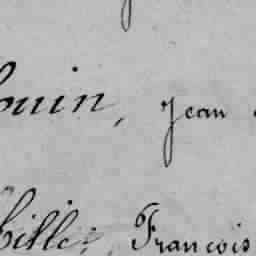 ouin, Jean
bille, François